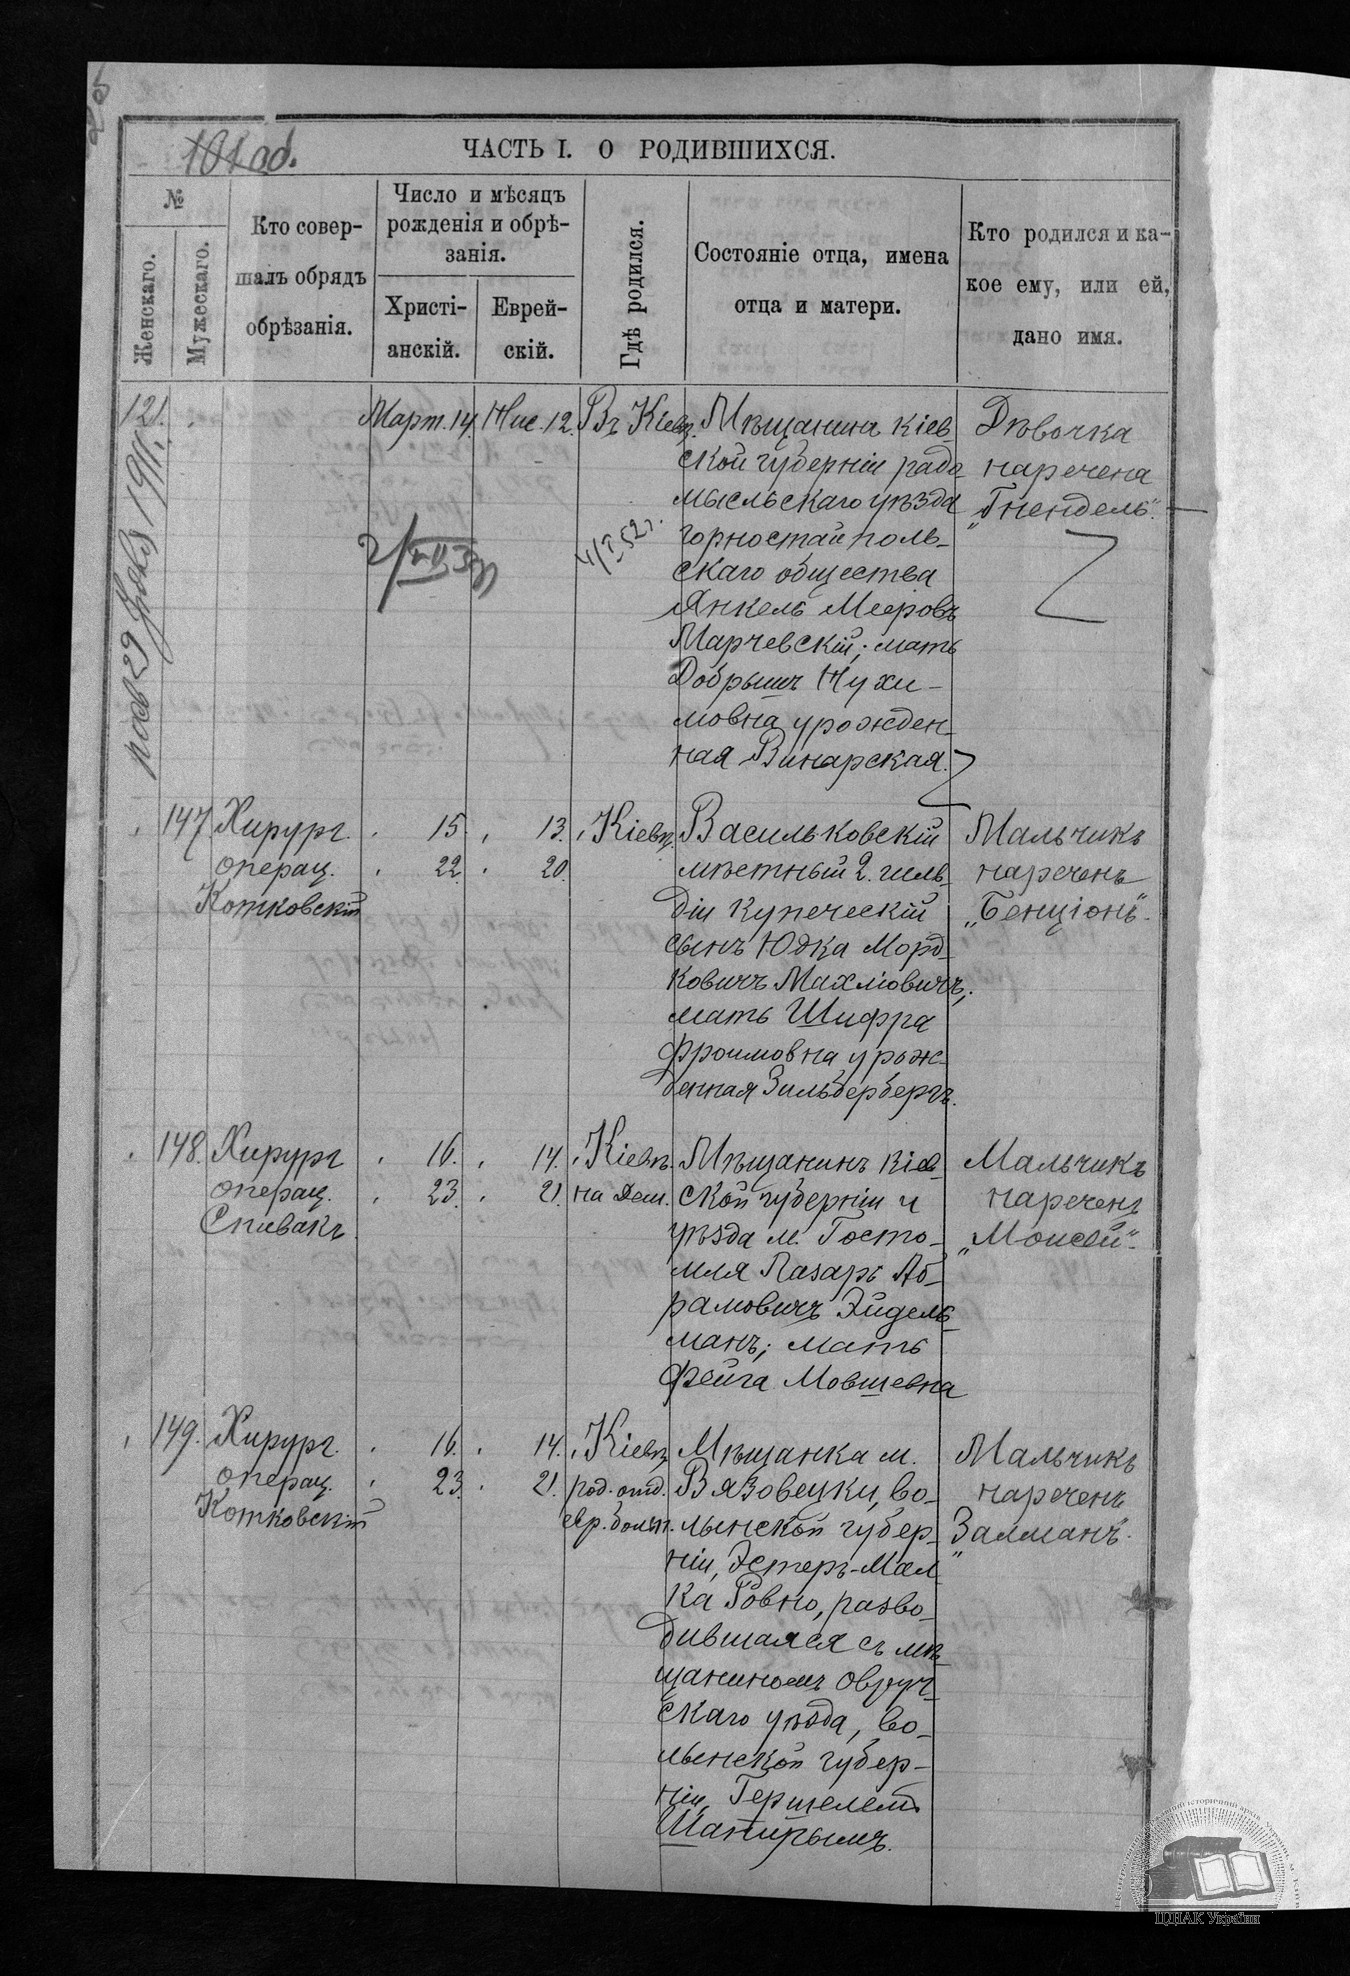 101 об.
ЧАСТЬ I. О РОДИВШИХСЯ.
№
Женскаго.
Мужескаго.
Кто совер-
шалъ обрядъ
обрѣзанія.
Число и мѣсяцъ
рожденія и обрѣ-
занія.
Христі-
анскій.
Еврей-
скій.
Гдѣ родился.
Состояніе отца, имена
отца и матери.
Кто родился и ка-
кое ему, или ей,
дано имя.
121.
Март. 14.
Нис. 12.
Въ Кіевѣ.
Мѣщанина Кіев
ской губерніи радо
мысльскаго уѣзда
горностайполь-
скаго общества
Янкель Мееровъ
Марчевскій; мать
Добрышъ Нухи-
мовна урожден-
ная Винарская.
Дѣвочка
наречена
„Гнендель".
29 1911 г.
147
Хирург.
операц.
Котковскій
15.
22.
13.
20.
Кіевѣ.
Васильковскій
мѣстный 2. гиль-
діи купеческій
сынъ Юдка Морд-
ковичъ Махліовичъ;
мать Шифра
Фроимовна урож-
денная Зильбербергъ.
Мальчикъ
нареченъ
„Бенціонъ".
148.
Хирург
операц.
Спивакъ
16.
23.
14.
21.
Кіевѣ.
на Дем.
Мѣщанинъ Кіев
ской губерніи и
уѣзда м. Госто-
мля Лазарь Аб-
рамовичъ Эйдель-
манъ; мать
Фейга Мовшевна
Мальчикъ
нареченъ
„Моисей".
149.
Хирург.
операц.
Котковскій
16.
23.
14.
21.
Кіевѣ
род. отд.
евр. больн.
Мѣщанка м.
Вязовецки, во-
лынской губер-
ніи, Эстеръ-Мал-
ка Ровно, разво-
дившаяся съ мѣ-
щаниномъ Овруч-
скаго уѣзда, во-
лынской губер-
ніи, Гершелемъ
Шапирымъ.
Мальчикъ
нареченъ
„Залманъ".
ЦДІАК України